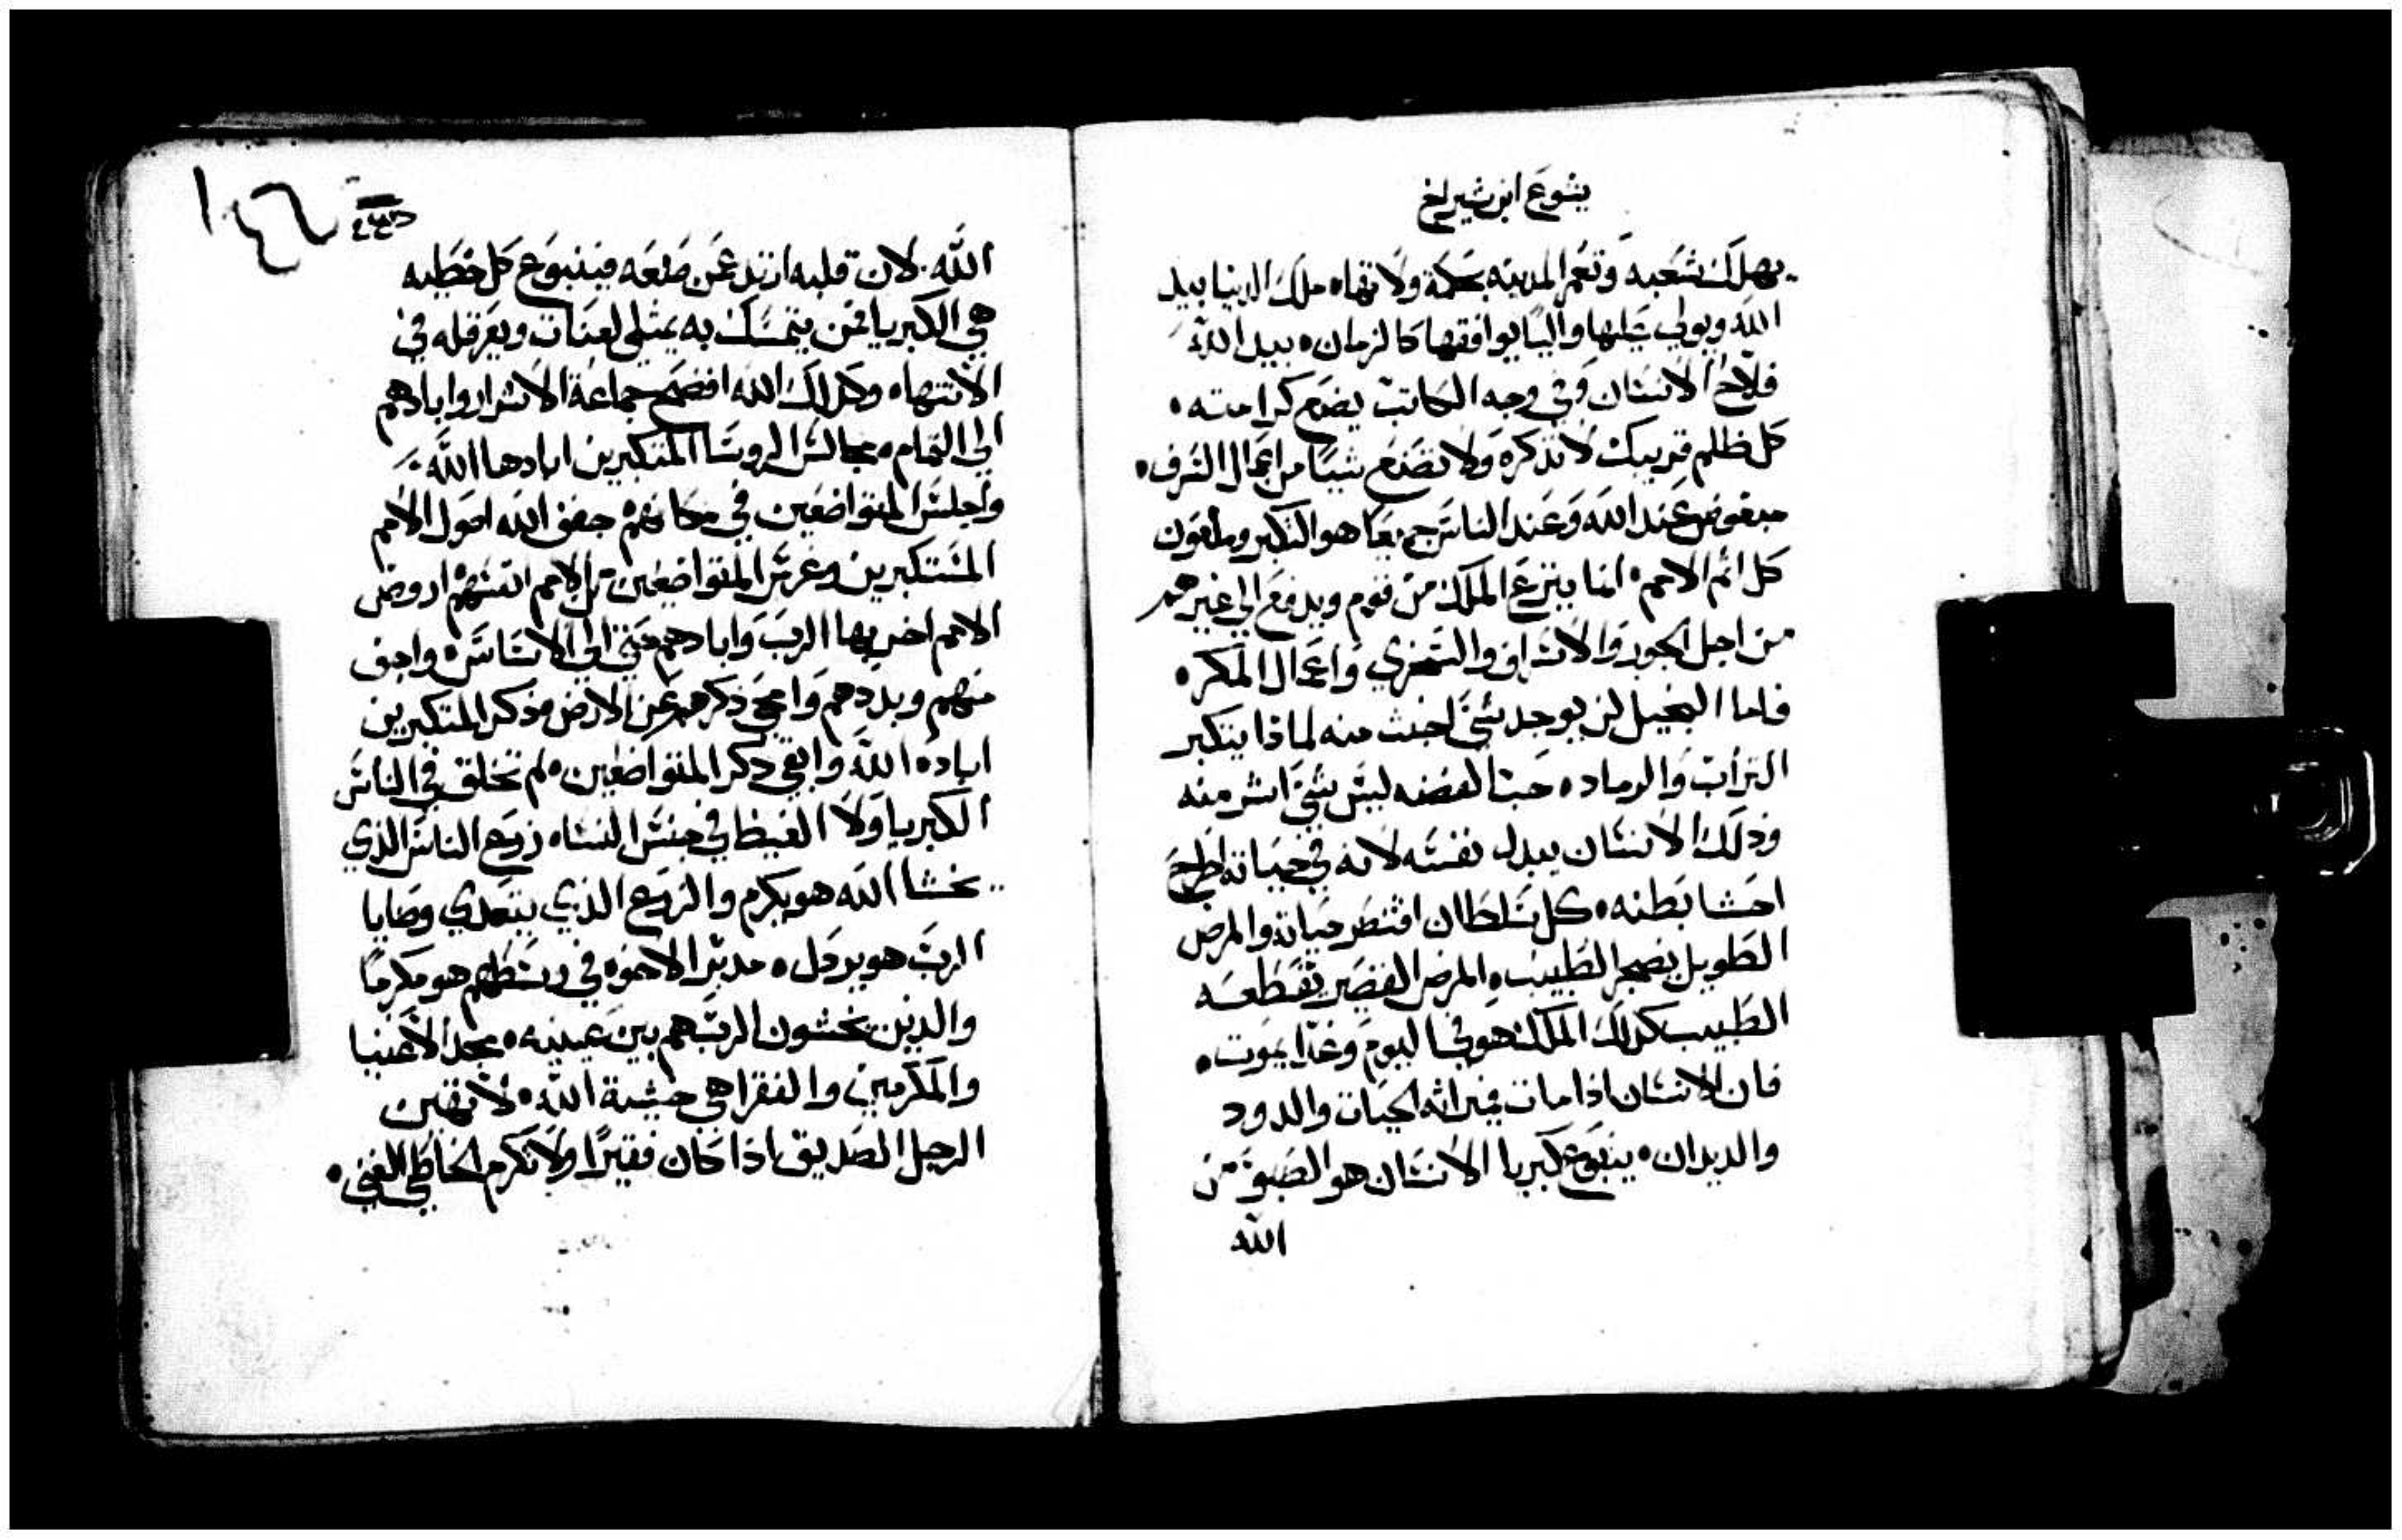 يشوع ابن شيراخ
يهلك شعبه وتعمر المدينه بحكمة ولاتها ه ملك الدنيا بيد
الله ويولي عليها واليًا يوافقها كالزمان ه بيد الله
فلاح الانسان وفي وجه الكاتب يضع كرامته ه
كل ظلم قريبك لا تذكره ولا تصنع شيًا من اعمال الترف ه
مبغوض عند الله وعند الناس جميعًا هو التكبر وملعون
كل اثم الامم ه انما ينزع الملك من قوم ويدفع الي غيرهم
من اجل الجور والاسراف والتمغري واعمال المكر ه
فاما البخيل لن يوجد شي اخبث منه لماذا يتكبر
التراب والرماد ه حب الفضه ليس شي اشر منه
وذلك الانسان يبدل نفسه لانه في حياته اطرح
احشا بطنه ه كل سلطان اقتصر حياته والمرض
الطويل يضجر الطبيب ه المرض القصير تقطعه
الطبيب كذلك الملك هو في اليوم وغدًا يموت ه
فان الانسان اذا مات فميراثه الحيات والدود
والديدان ه ينبوع كبريا الانسان هو الصبو من
الله
١٤٦
الله لان قلبه ارتد عن صانعه فينبوع كل خطيه
هي الكبريا فمن يتمسك به يمثلي لعنات ويعرقله في
الانتها ه وكذلك الله افضح جماعة الاشرار وابادهم
الي التمام ه مجالس الروسا المتكبرين ابادها الله
واجلس المتواضعين في مكانهم ه جفف الله اصول الامم
المستكبرين وغرس المتواضعين من الامم انفسهم ه اروض
الامم اخربها الرب وابادهم حتي الي الاساس ه واجف
منهم وبددهم وامحي ذكرهم عن الارض ه ذكر المتكبرين
اباده الله وابقي ذكر المتواضعين ه لم تخلق في الناس
الكبريا ولا الغيظ في جنس النسا ه زرع الناس الذي
يخشا الله هو يكرم والزرع الذي يتعدي وصايا
الرب هو يرذل ه مدبر الاخوه في وسطهم هو مكرمًا
والذين يخشون الرب هم بين عينيه ه مجد الاغنيا
والمكرمين والفقرا هي خشية الله ه لا تهين
الرجل الصديق اذا كان فقيرًا ولا تكرم الخاطي الغني ه